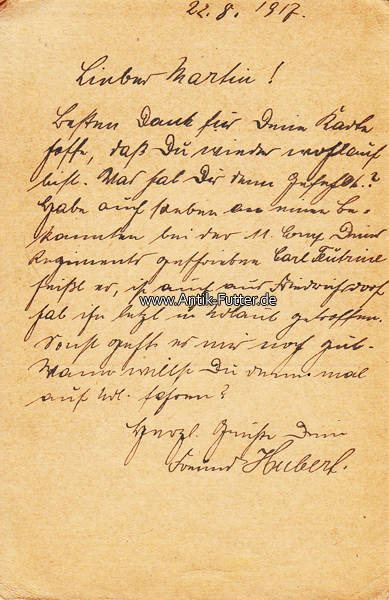 22.8.1917.
Lieber Martin!
Besten Dank für Deine Karte
hoffe, daß Du wieder wohlauf
bist. Was hat Dir denn gefehlt..?
Habe auch soeben an einen Be-
kannten bei der 11. Comp. Deines
Regiments geschrieben Carl
heißt er, ist auch aus Friedrichsdorf
www.Antik-Futter.de
hab ihn letzt in Urlaub getroffen.
Sonst geht es mir noch gut.
Wann willst Du denn mal
auf Url. fahren?
Herzl. Grüße Dein
Freund Hubert.